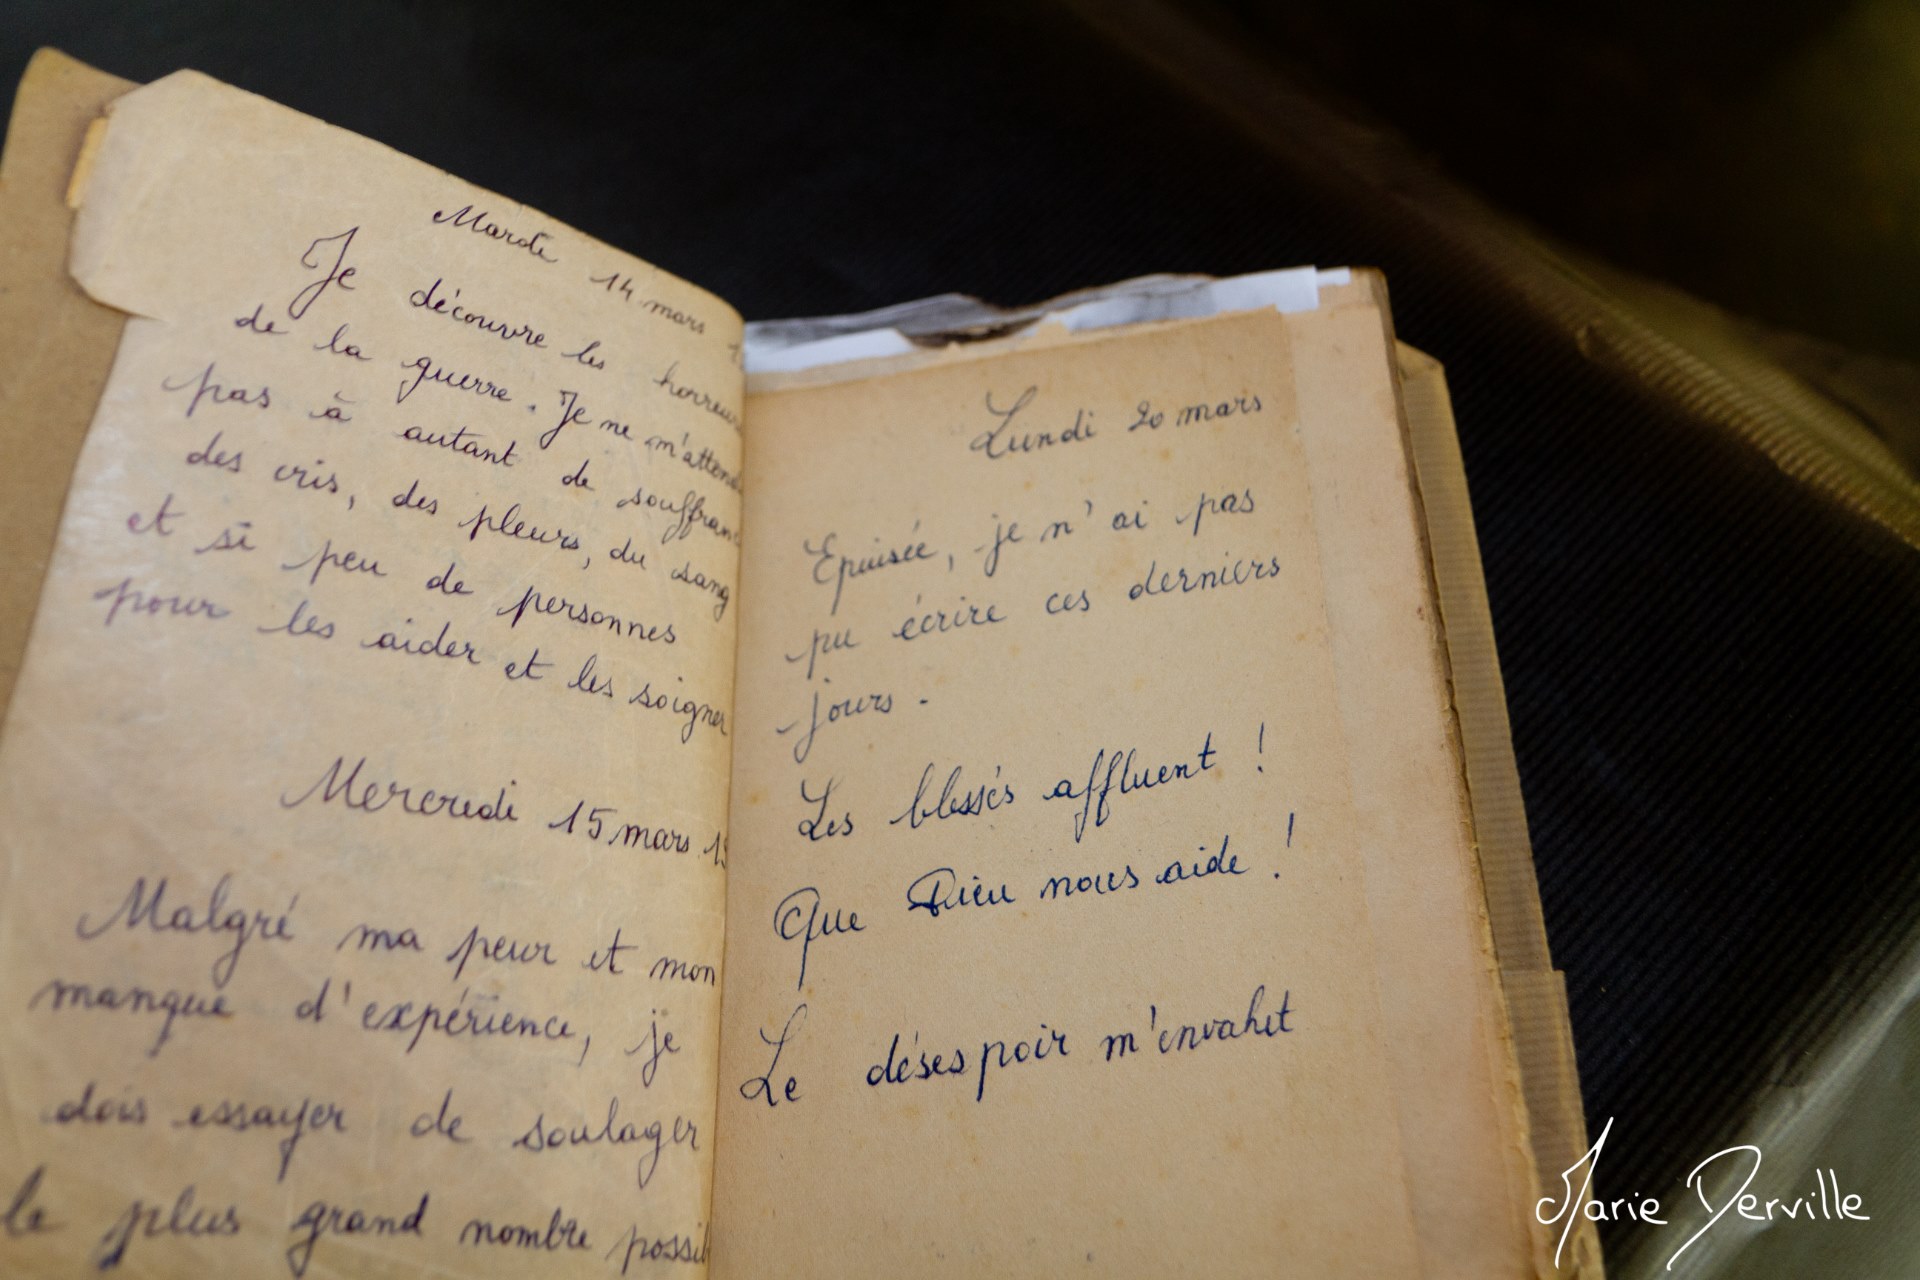 Mardi 14 mars
Je découvre les horreurs
de la guerre. Je ne m'attend
pas à autant de souffranc
des cris, des pleurs, du sang
et si peu de personnes
pour les aider et les soigner
Mercredi 15 mars 19
Malgré ma peur et mon
manque d'expérience, je
dois essayer de soulager
le plus grand nombre possib
Lundi 20 mars
Epuisée, je n'ai pas
pu écrire ces derniers
jours.
Les blessés affluent !
Que Dieu nous aide !
Le désespoir m'envahit
Marie Derville